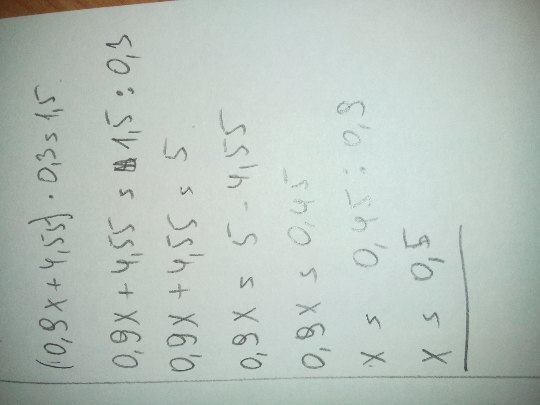 (0,9x + 4,55) · 0,3 = 1,5
0,9x + 4,55 = 1,5 : 0,3
0,9x + 4,55 = 5
0,9x = 5 - 4,55
0,9x = 0,45
x = 0,45 : 0,9
x = 0,5